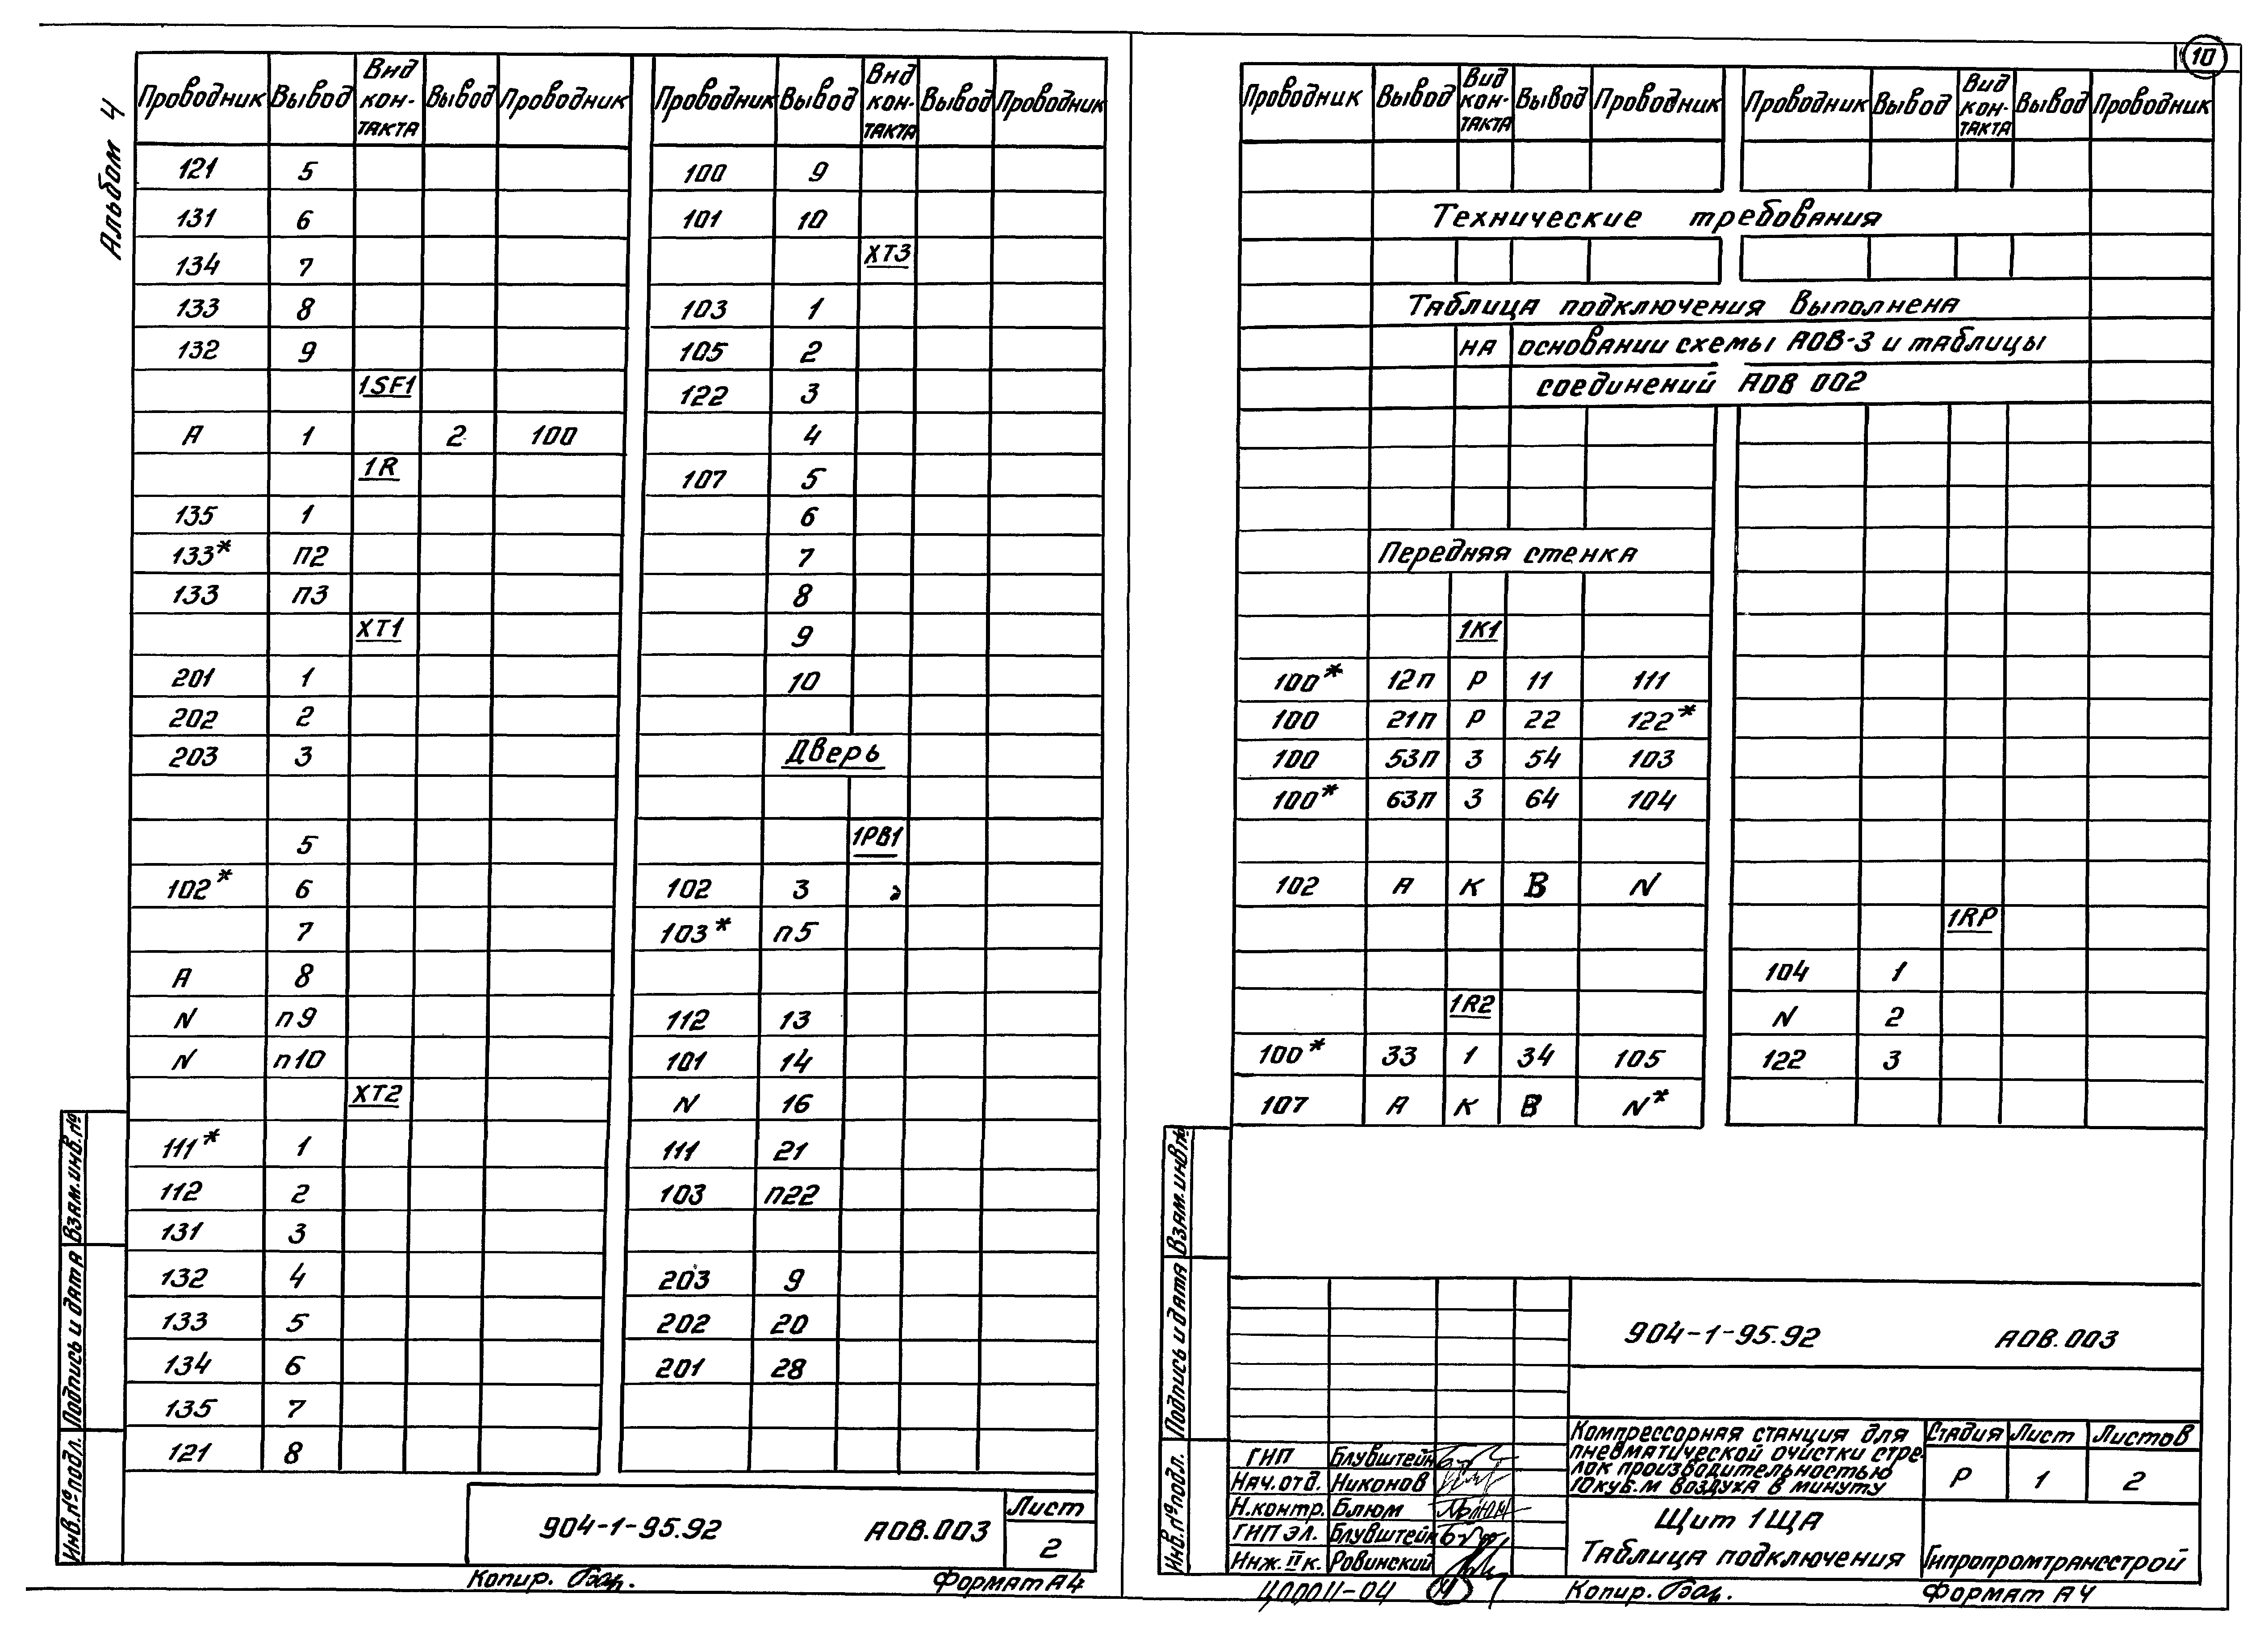 Альбом 4
Проводник Вывод Вид кон-такта Вывод Проводник
121 5
131 6
134 7
133 8
132 9
1SF1
А 1 2 100
1R
135 1
133* п2
133 п3
XT1
201 1
202 2
203 3
5
102* 6
7
А 8
N п9
N п10
XT2
111* 1
112 2
131 3
132 4
133 5
134 6
135 7
121 8
Проводник Вывод Вид кон-такта Вывод Проводник
100 9
101 10
XT3
103 1
105 2
122 3
4
107 5
6
7
8
9
10
Дверь
1РВ1
102 3
103* п5
112 13
101 14
N 16
111 21
103 п22
203 9
202 20
201 28
Взам.инв.№
Подпись и дата
Инв.№подл.
904-1-95.92 АОВ.003
Лист
2
Копир.
Формат А4
10
Проводник Вывод Вид кон-такта Вывод Проводник
Проводник Вывод Вид кон-такта Вывод Проводник
Технические требования
Таблица подключения выполнена
на основании схемы АОВ-3 и таблицы
соединений АОВ 002
Передняя стенка
1К1
100* 12п Р 11 111
100 21п Р 22 122*
100 53п З 54 103
100* 63п З 64 104
102 А К В N
1R2
100* 33 1 34 105
107 А К В N*
1RP
104 1
N 2
122 3
Взам.инв№
Подпись и дата
Инв.№подл.
904-1-95.92 АОВ.003
Компрессорная станция для
пневматической очистки стре-
лок производительностью
10куб.м воздуха в минуту
Стадия Лист Листов
Р 1 2
ГИП Блувштейн
Нач.отд. Никонов
Н.контр. Блюм
ГИП эл. Блувштейн
Инж. II к. Ровинский
Щит 1ЩА
Таблица подключения
Гипропромтрансстрой
Ц00011-04
Копир.
Формат А4